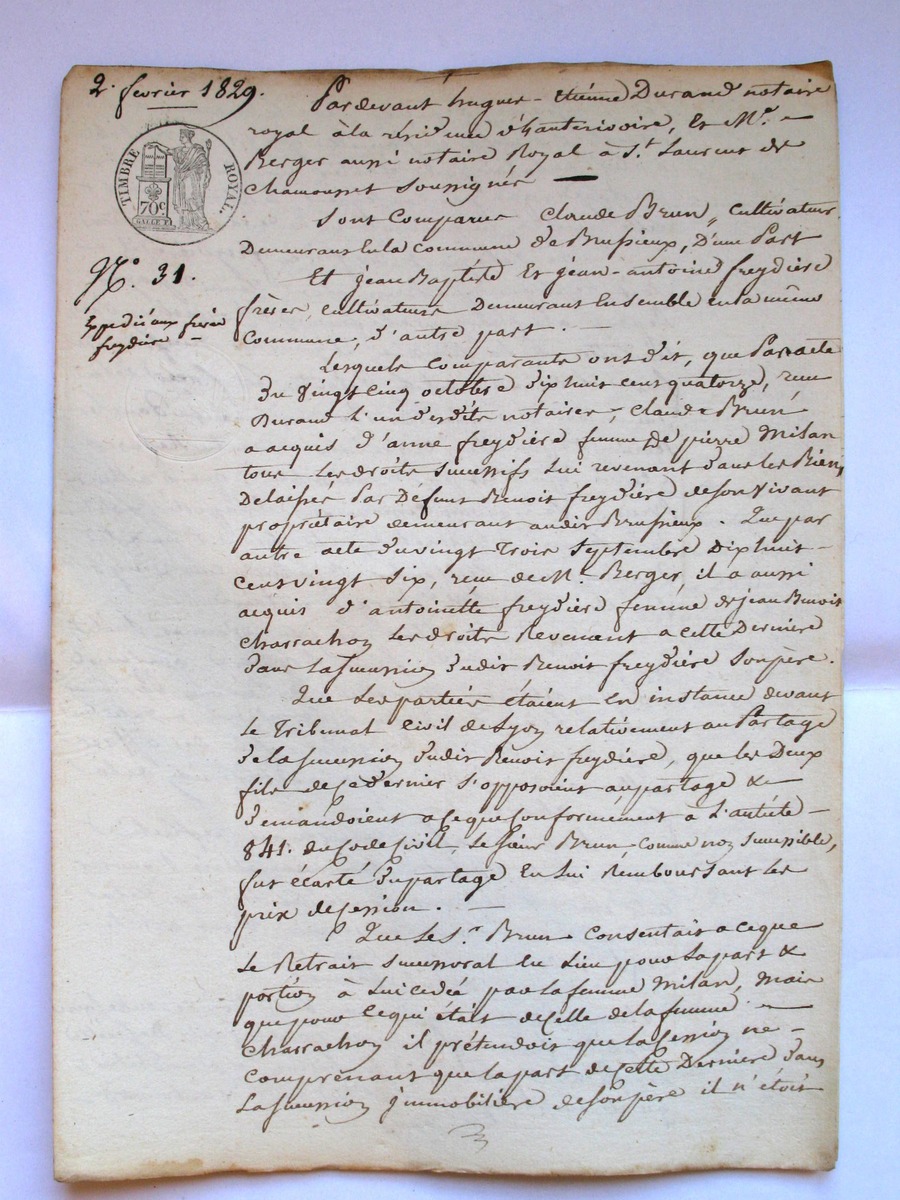 2. fevrier 1829.
TIMBRE ROYAL.
70c.
N.° 31.
Expedié aux freres
freydiere
Pardevant hugues-Etiénne Durand notaire
royal à la résidence d'hauterivoire, Et M.e
Berger aussi notaire Royal à S.t Laurent de
Chamousset Soussignés
Sont Comparus Claude Brun, Cultivateur
Demeurant En la commune de Brussieux, D'une Part
Et jean Baptiste Et jean-antoine freydière
frères, cultivateurs Demeurant Ensemble en la même
Commune, d'autre part.
Lesquels Comparants ont dit, que Par acte
du vingt cinq octobre dix huit cent quatorze, reçu
Durand l'un desdits notaires, Claude Brun
a acquis d'anne freydière femme de pierre Milan
tous Les droits successifs lui revenant dans les Biens
Délaissés Par Défunt Benoit freydière de son vivant
propriétaire demeurant audit Brussieux. Que par
autre acte du vingt trois Septembre Dix huit
cent vingt six, reçu de M.e Berger, il a aussi
acquis d'antoinette freydière femme de jean Benoit
Charrachon Les droits Revenant a cette Derniere
dans La succession dudit Benoit freydière son père.
Que Les parties étaient en instance devant
Le Tribunal Civil de Lyon relativement au Partage
de la succession dudit Benoit freydière, que les Deux
fils de ce dernier s'opposoient au partage &
demandoient a ce que Conformément à L'article
841. du Code Civil, Le sieur Brun Comme non successible,
fut écarté du partage En Lui Remboursant Les
prix de Cession.
Que Le S.r Brun Consentait a ce que
Le Retrait successoral eu Lieu pour La part &
portion à Lui cedée par La femme Milan, Mais
que pour ce qui était de Celle de la femme
Charrachon il prétendoit que la Cession ne
Comprenant que la part de Cette Dernière dans
La succession immobilière de son père il n'étoit